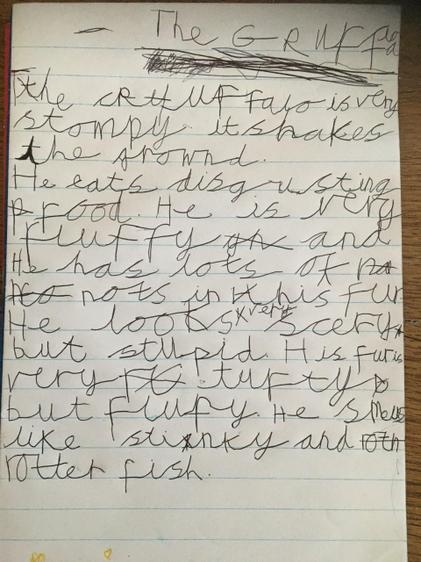 The GRUFFalo
the GRUFFalo is very
stompy. it shakes
the grownd.
He eats disgusting
food. He is very
fluffy and
He has lots of
nots in his fur
He looks very scery
but stupid. His fur is
very tufty
but flufy. He smells
like stinky and
rotter fish.